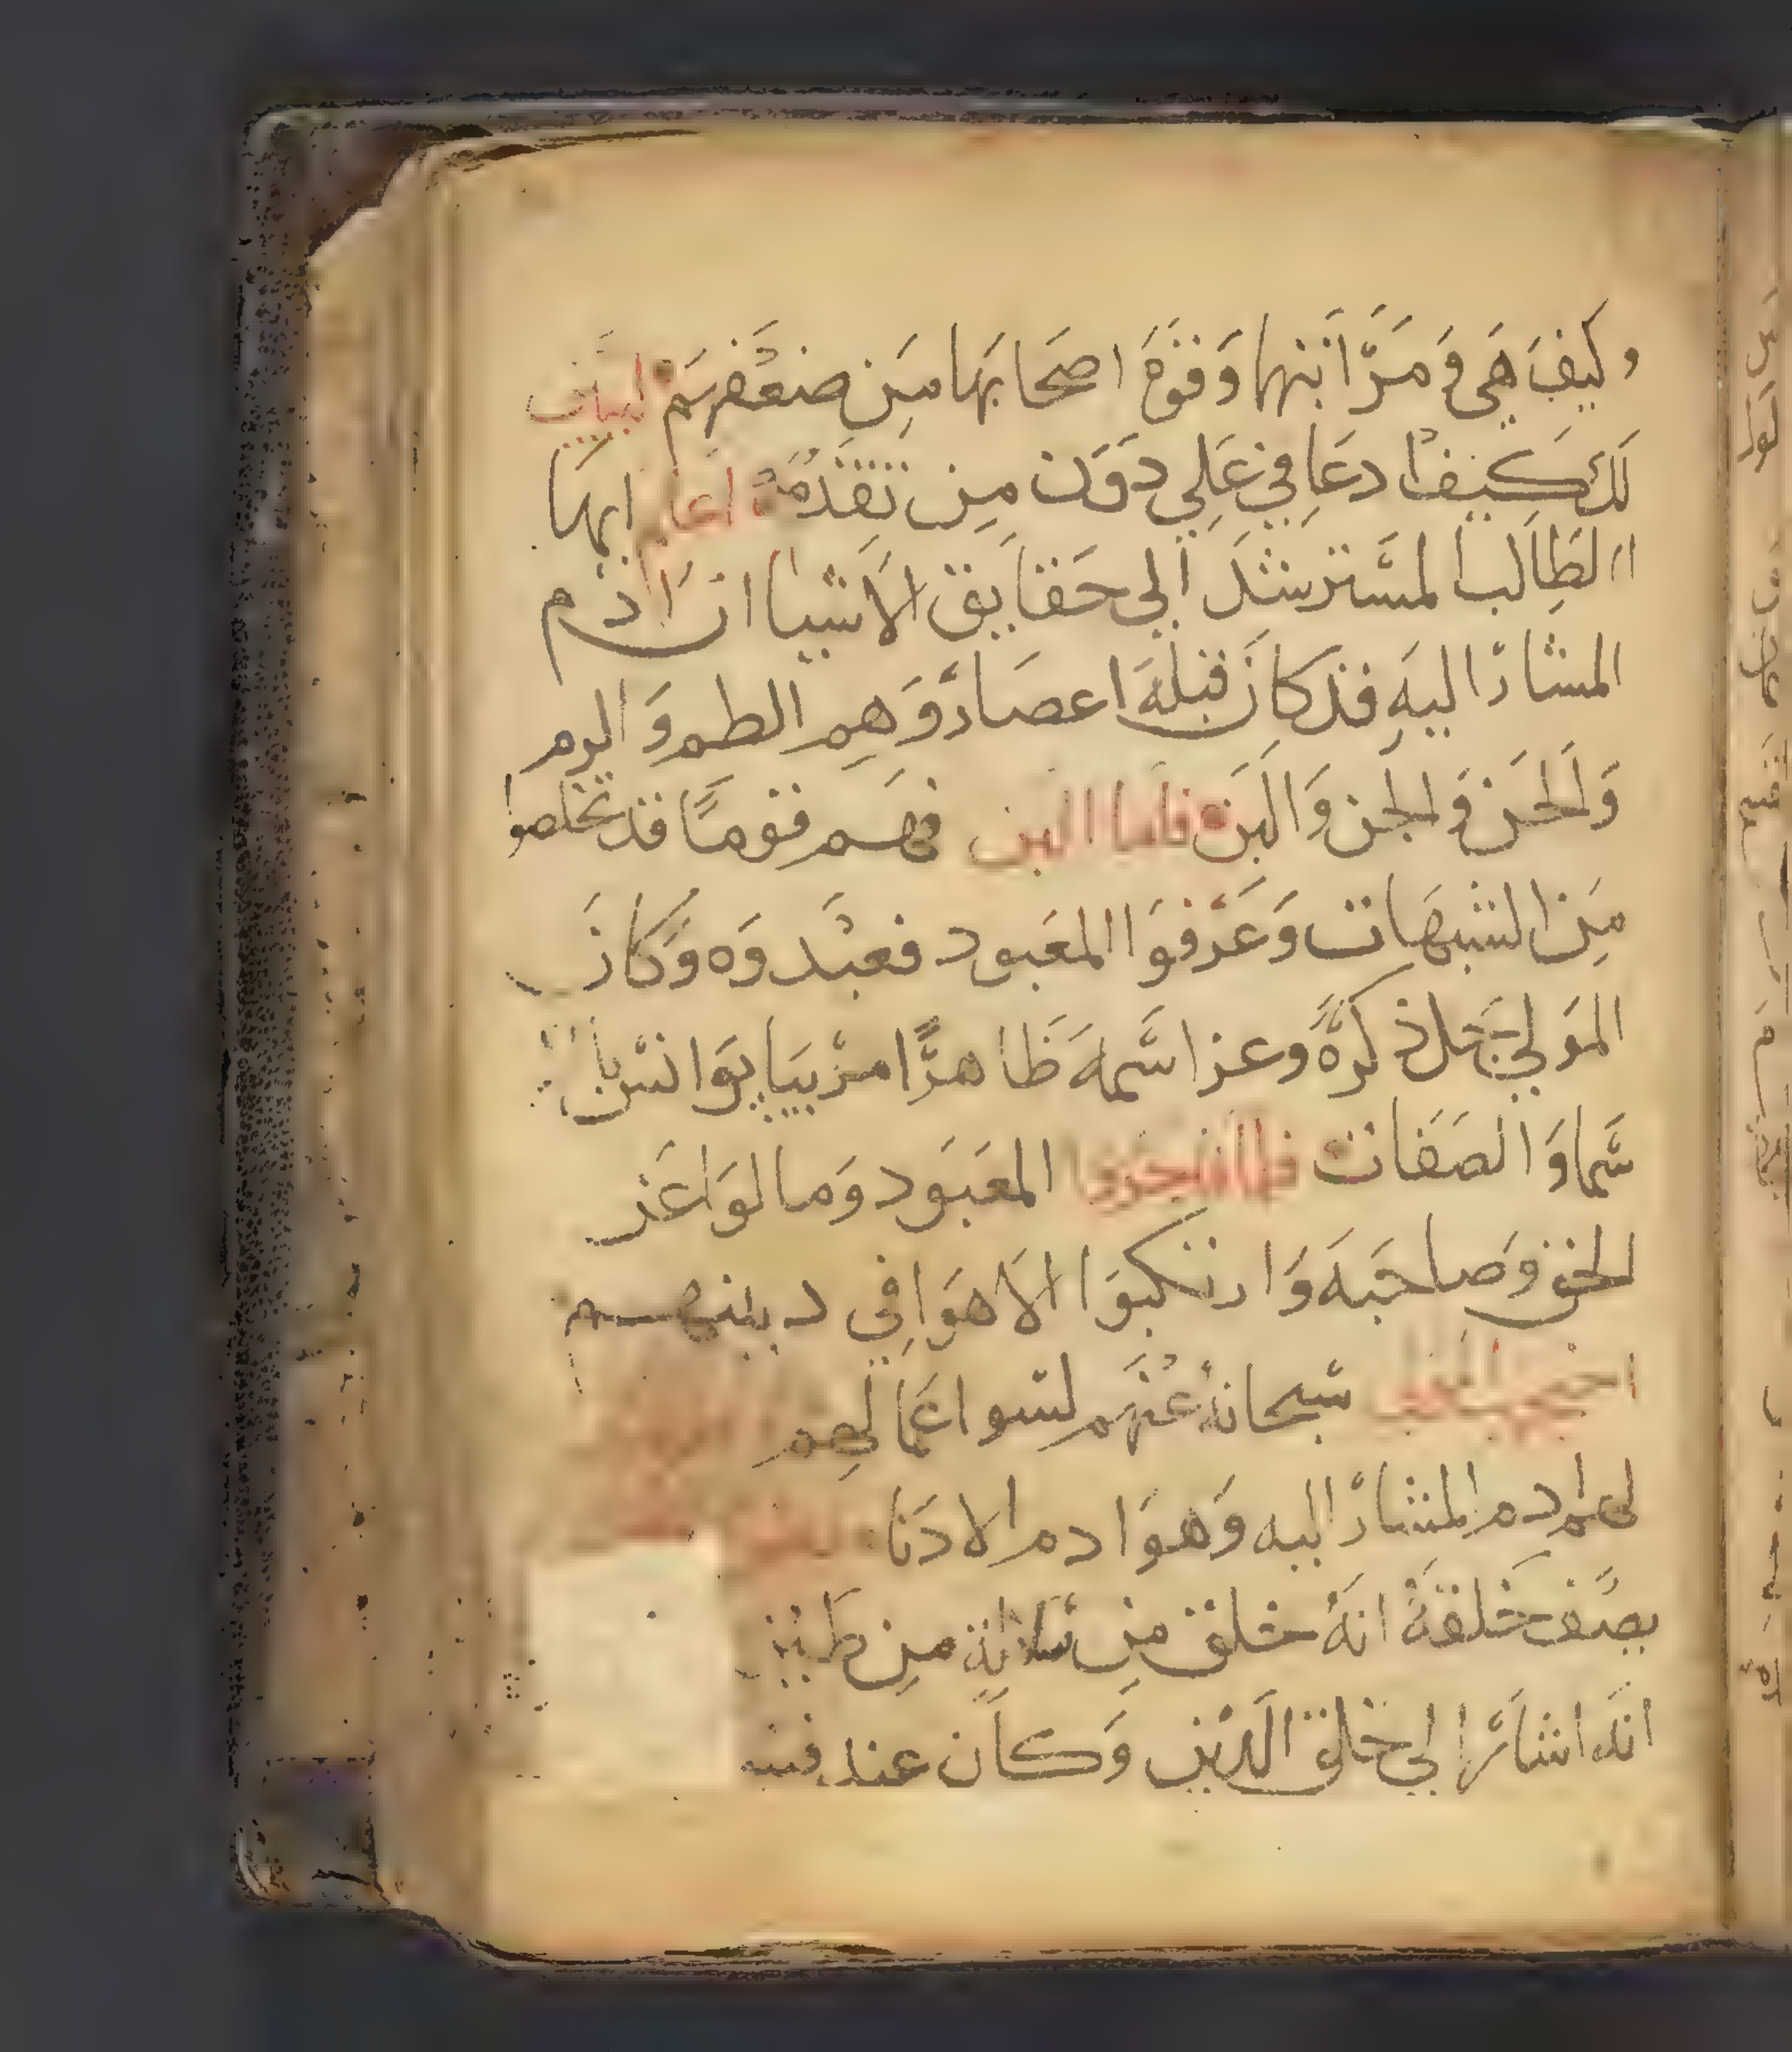 وكيفَ هَي وَمَرَّاتبها وَقوَة اصحَابهَا مِن ضعفهم ليبان
لَك كيف ادعَا في عَلِي دوَن مِن تقدمَهُ اعلم ايهَا
الطِالَب المسَترشد الي حَقايق الاشيا ان ادم
المشارَ اليهِ قد كانَ قبلهَ اعصَار وَهم الطم وَالرم
وَلَلحن وَالجن وَالبن فاما البن فهَم قومًا قد تخلصوا
مِن الشبهَات وَعَرفوَا المعَبود فعبدوَه وَكانَ
الموَلي جَل ذكرهَ وعز اسَمهَ ظاهرًا مرييَا يوَانسَ با
سَما وَالصَفات فلما انجزوا المعَبوَد وَمالوَا عَن
الحق وَصاحبَهَ وَارتكبوَا الاهوَا في دينهم
احتجب المولي سَبحانهُ عنَهم لسَو اعَمالهِم
ادم المشارَ اليه وَهوَ ادم الادنَا
بصَف خَلقهَ انهَ خلق مِن سَلالة مِن طَين
انهَ اشارَ الي خلق الَدين وَكان عند